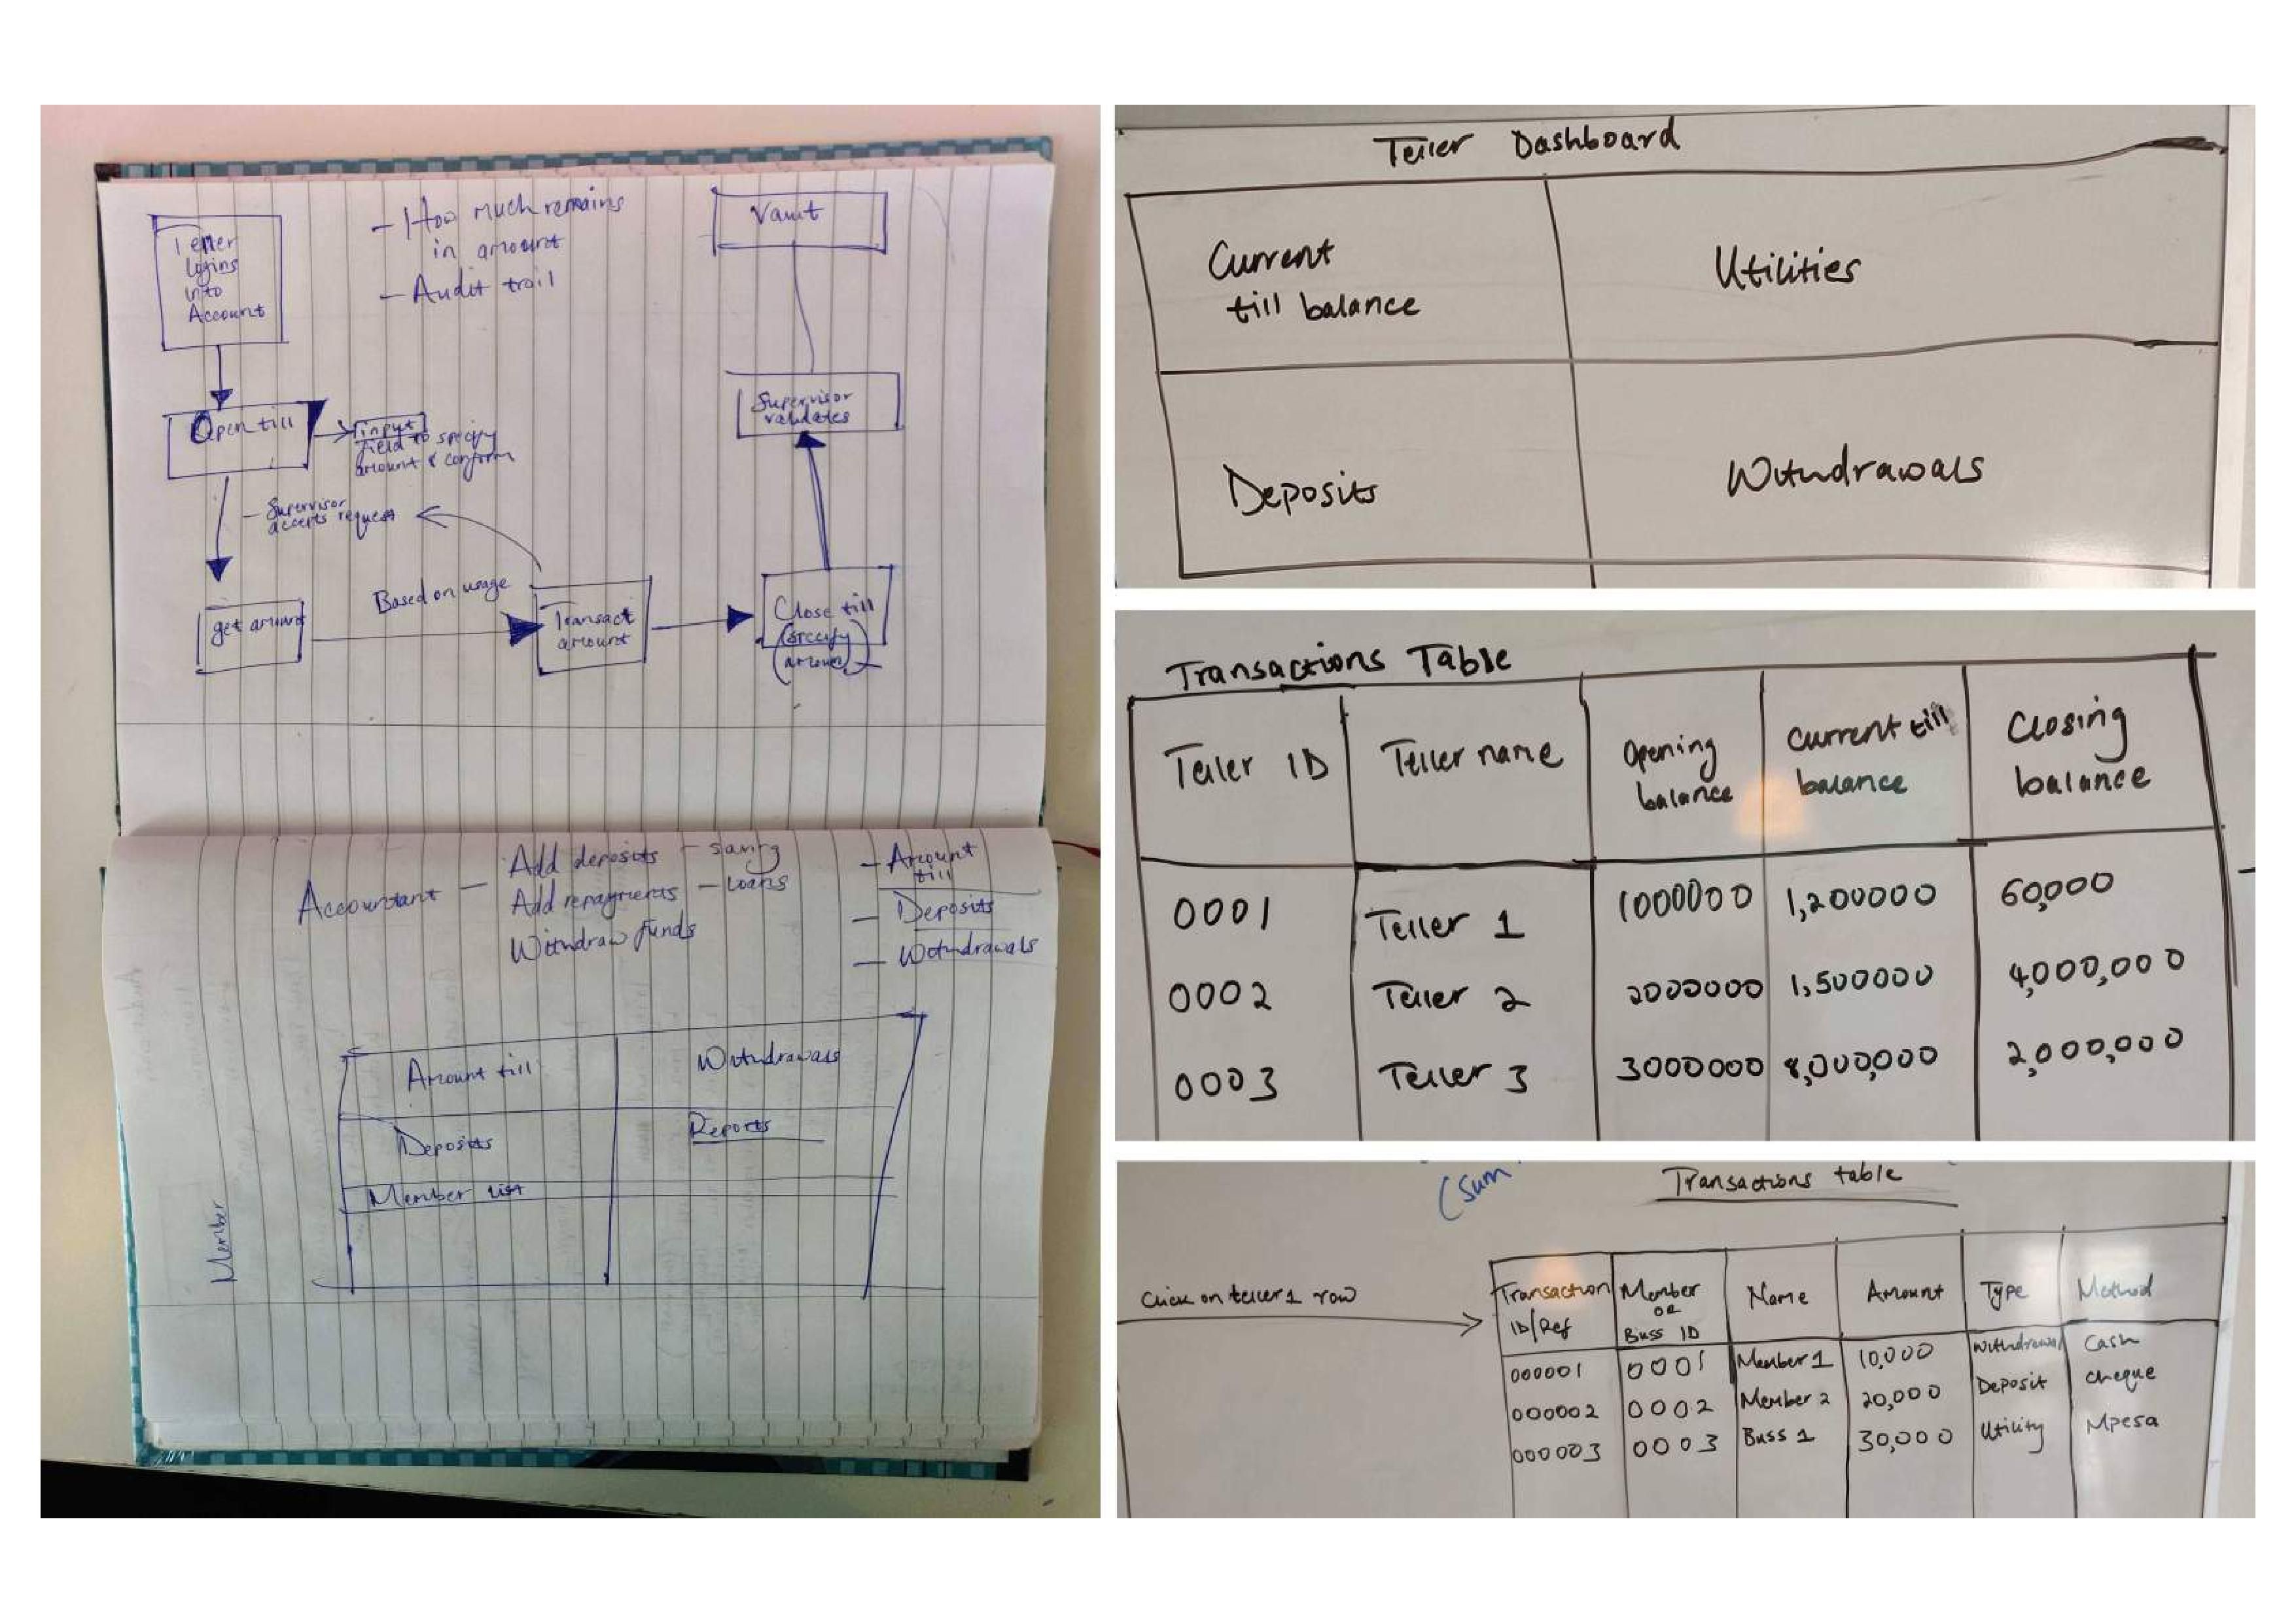 Teller
Logins
into
Account
- How much remains
in amount
- Audit trail
Vault
Open till
input
field to specify
amount & confirm
Supervisor
validates
- Supervisor
accepts request
get amount
Based on usage
Transact
amount
Close till
(specify
amount)
Accountant - Add deposits - saving
Add repayments - Loans
Withdraw funds
- Amount
till
- Deposits
- Withdrawals
Amount till
Withdrawals
Deposits
Reports
Member list
Member
Teller Dashboard
Current
till balance
Utilities
Deposits
Withdrawals
Transactions Table
Teller ID
Teller name
Opening
balance
Current till
balance
Closing
balance
0001 Teller 1 1000000 1,200000 60,000
0002 Teller 2 2000000 1,500000 4,000,000
0003 Teller 3 3000000 8,000,000 2,000,000
(sum
Transactions table
Click on teller 1 row
Transaction
ID/Ref
Member
OR
Buss ID
Name
Amount
Type
Method
000001 0001 Member 1 10,000 Withdrawal Cash
000002 0002 Member 2 20,000 Deposit Cheque
000003 0003 Buss 1 30,000 Utility Mpesa